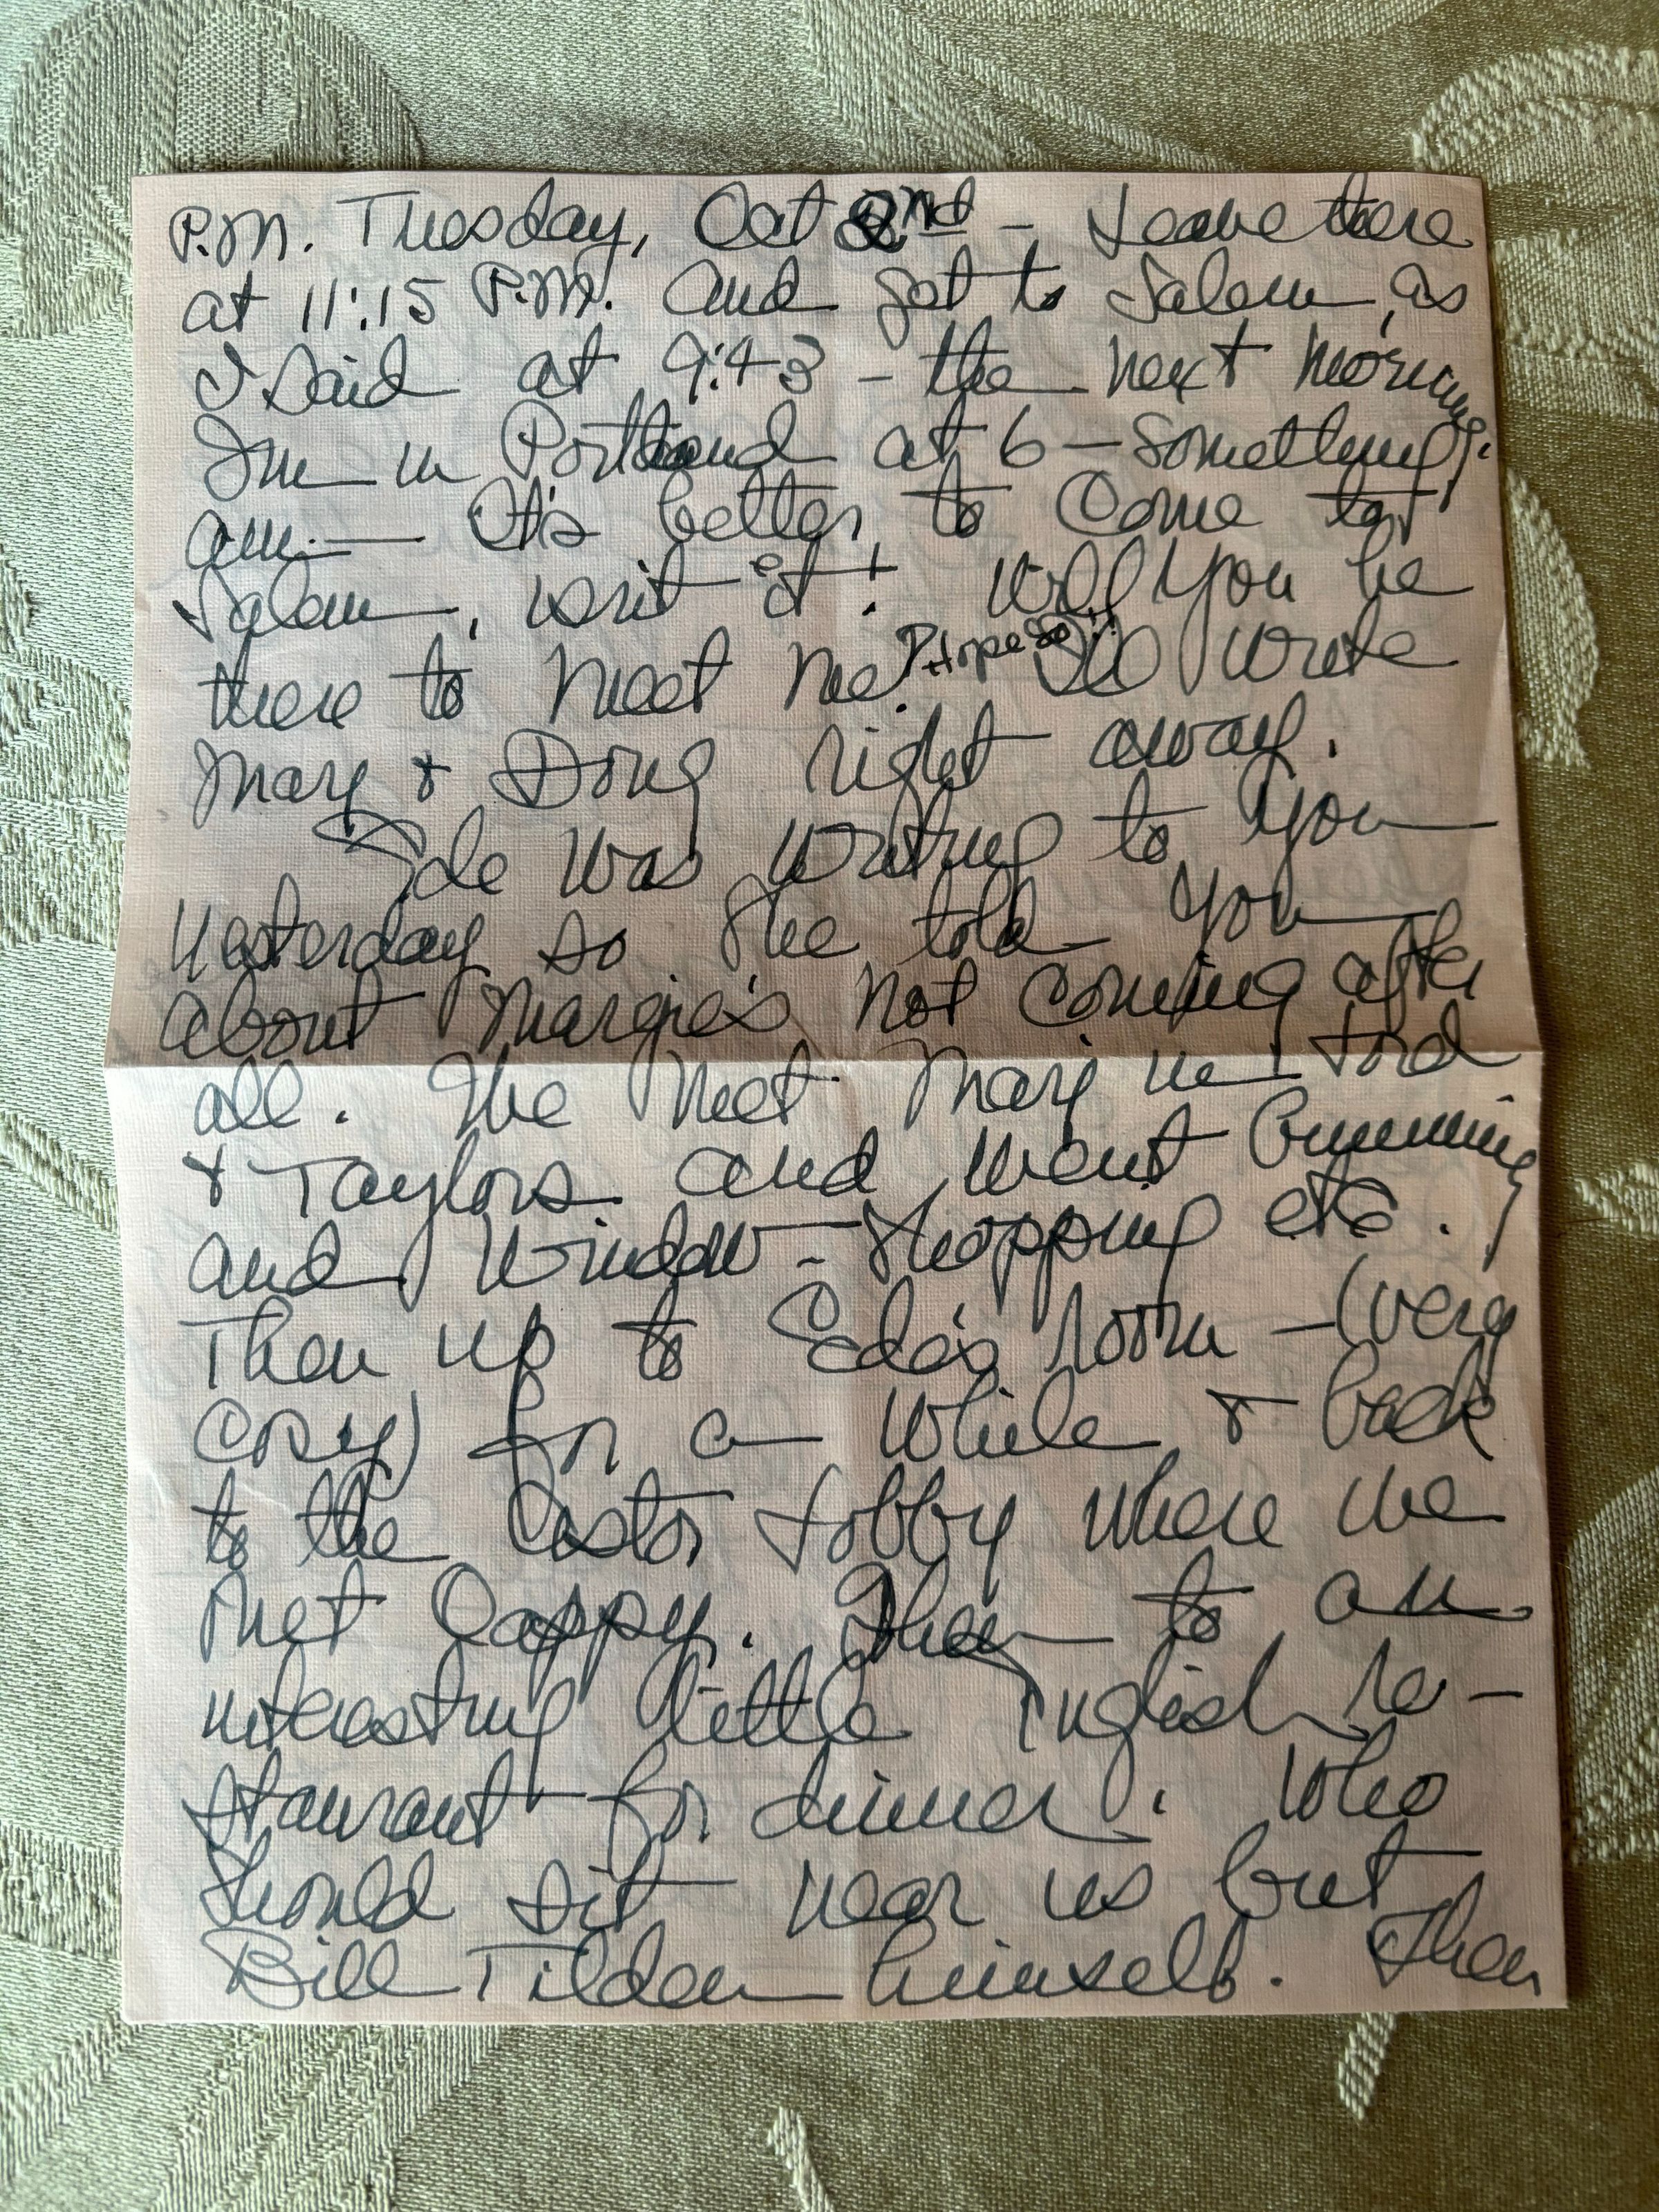 P.M. Tuesday, Oct 2nd - Leave there
at 11:15 P.M. and get to Salem, as
I said at 9:43 - the next morning.
I'm in Portland at 6 - something
am. - It's better to come to
Salem, isn't it! Will you be
there to meet me? Hope so!! I'll write
Mary & Doug right away.
Ede was writing to you
yesterday so she told you
about Margie's not coming after
all. We met Mary in Lord
& Taylors and went bumming
and window-shopping etc.
Then up to Ede's room - (very
cosy) for a while & back
to the Astor Lobby where we
met Cappy. Then to an
interesting little English re-
staurant for dinner. Who
should sit near us but
Bill Tilden himself. Then